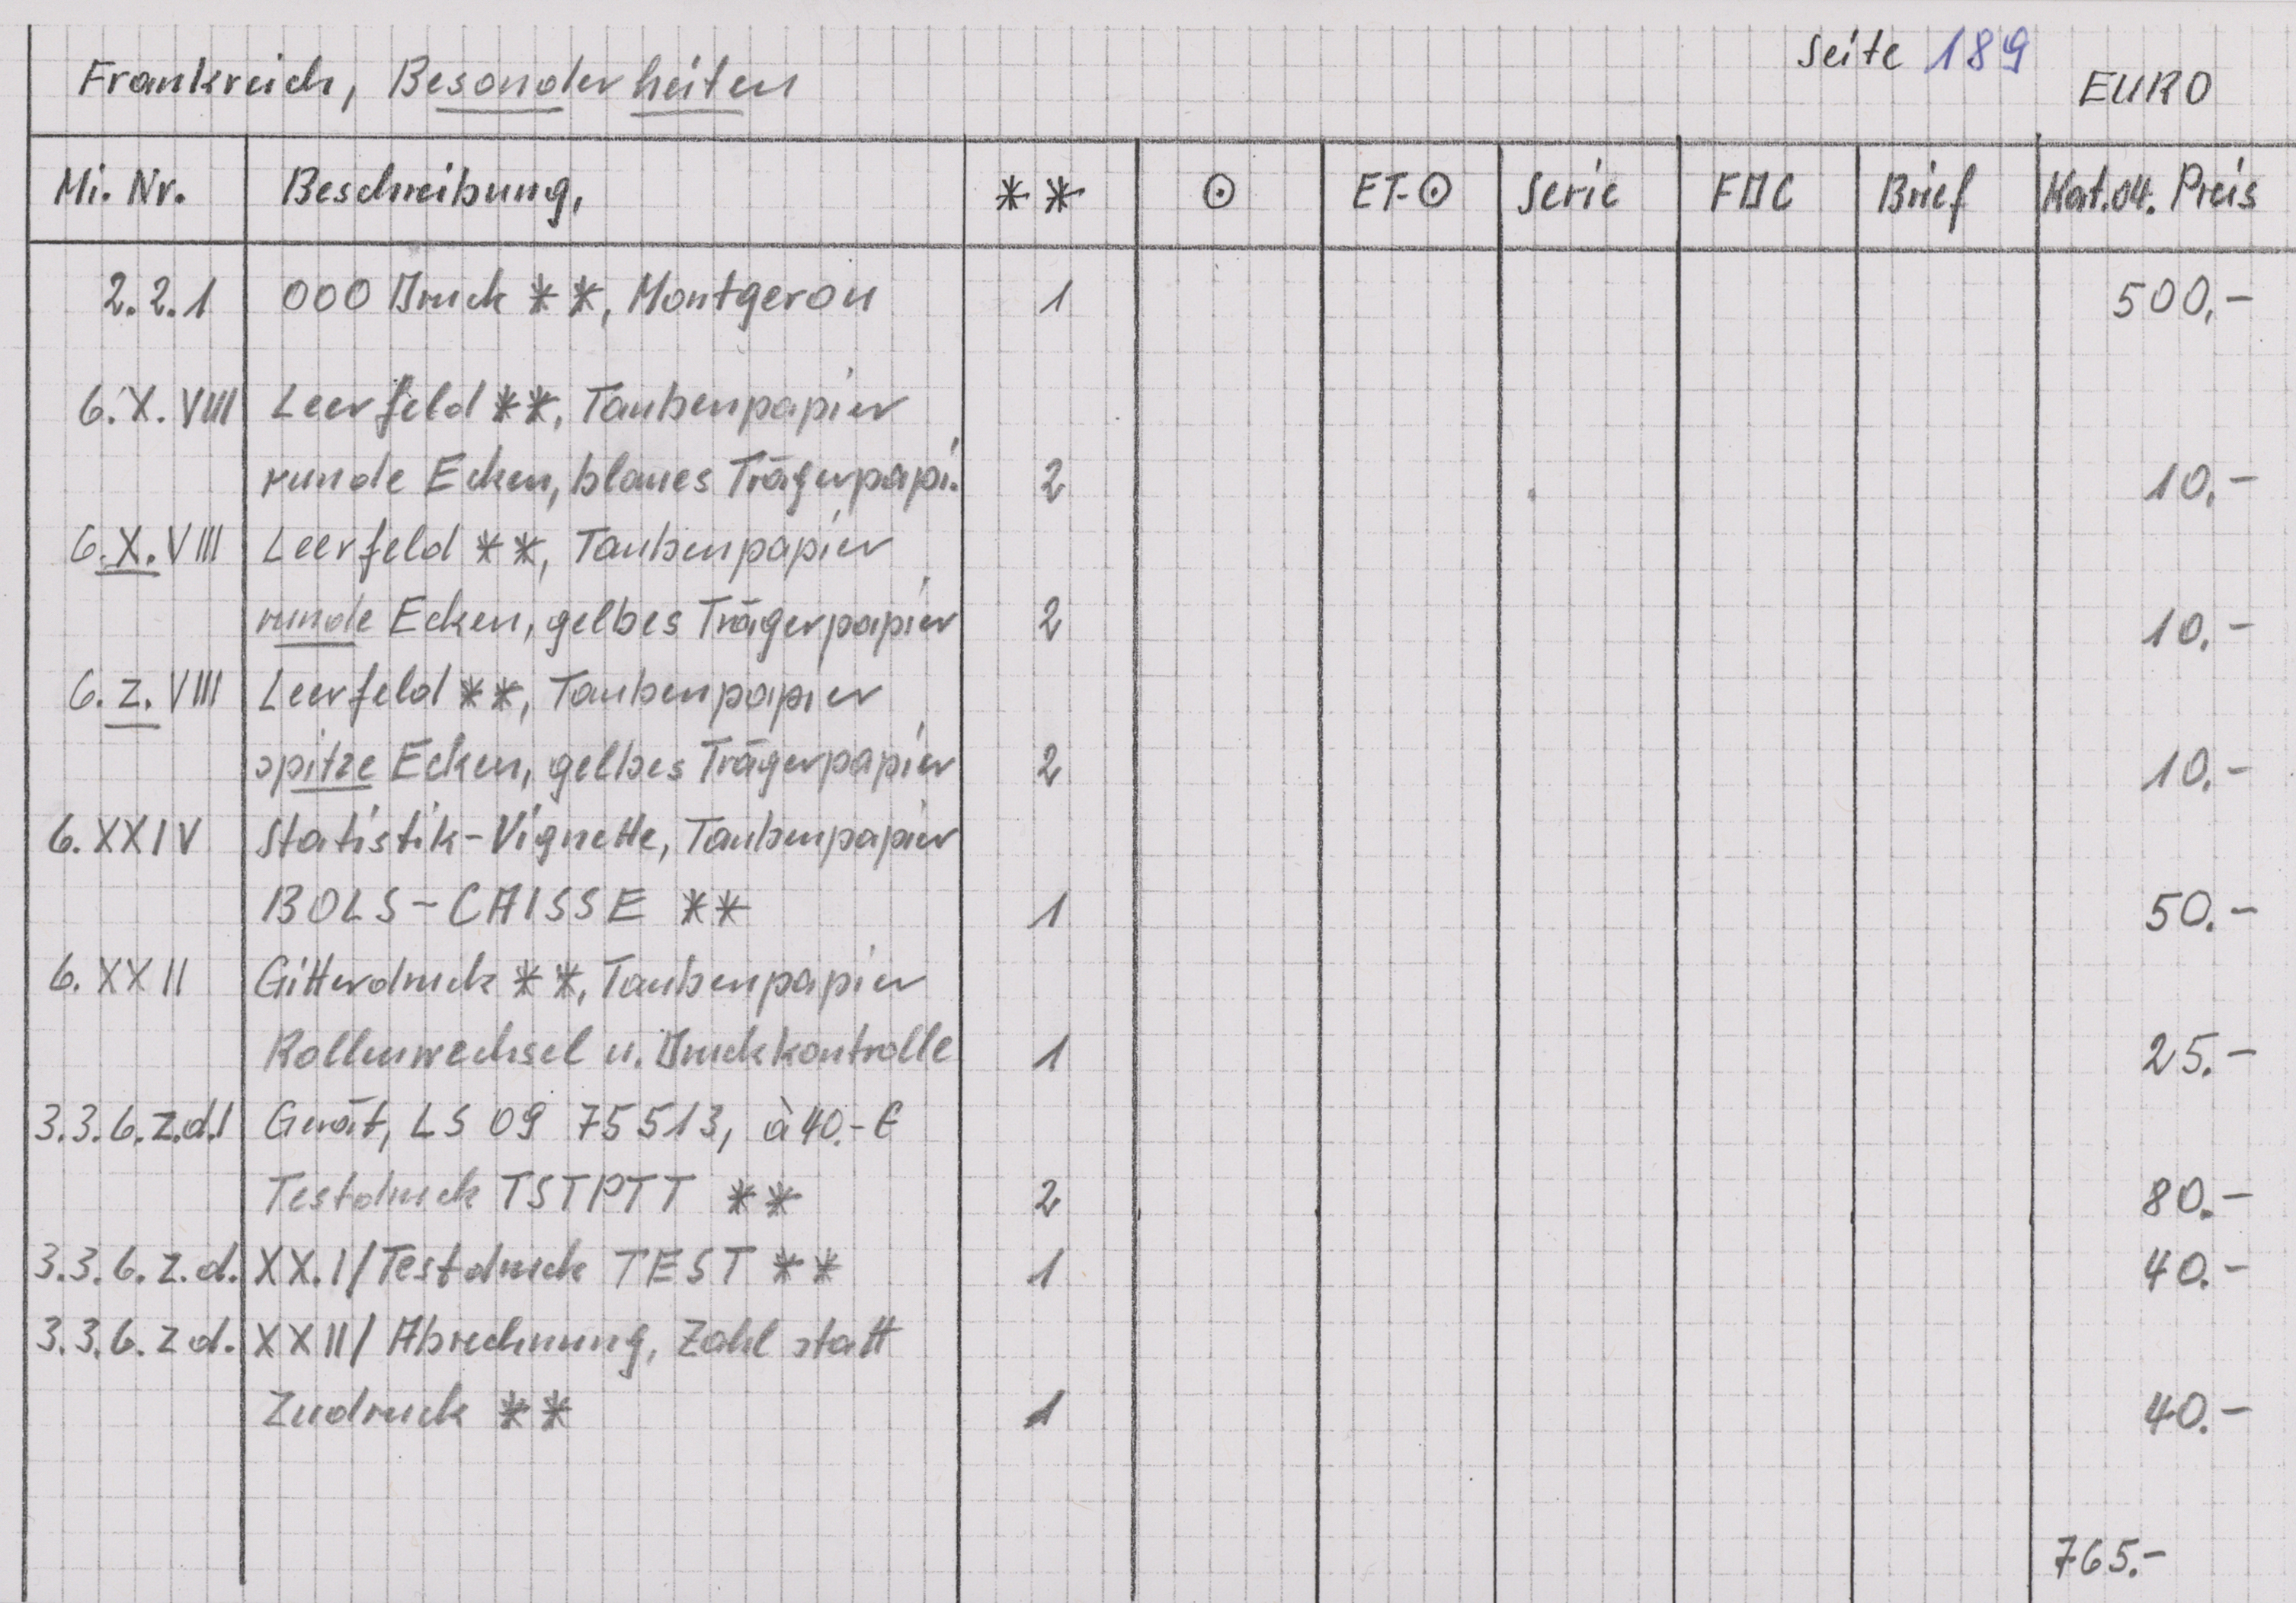 Seite 189
Frankreich, Besonderheiten EURO
Mi. Nr. Beschreibung, ** ⊙ ET-⊙ Serie FDC Brief Kat.04. Preis
2.2.1 000 Druck **, Montgeron 1 500,-
6.X.VIII Leerfeld **, Taubenpapier
runde Ecken, blaues Trägerpapi. 2 10,-
6.X.VIII Leerfeld **, Taubenpapier
runde Ecken, gelbes Trägerpapier 2 10.-
6.Z.VIII Leerfeld **, Taubenpapier
spitze Ecken, gelbes Trägerpapier 2 10.-
6.XXIV Statistik-Vignette, Taubenpapier
BOLS-CAISSE ** 1 50.-
6.XXII Gitterdruck **, Taubenpapier
Rollenwechsel u. Druckkontrolle 1 25.-
3.3.6.Z.d.1 Gerät, LS 09 75513, à 40.-€
Testdruck TSTPTT ** 2 80.-
3.3.6.Z.d. XX.I/Testdruck TEST ** 1 40.-
3.3.6.Z d. XXII/Abrechnung, Zahl statt
Zudruck ** 1 40.-
765.-